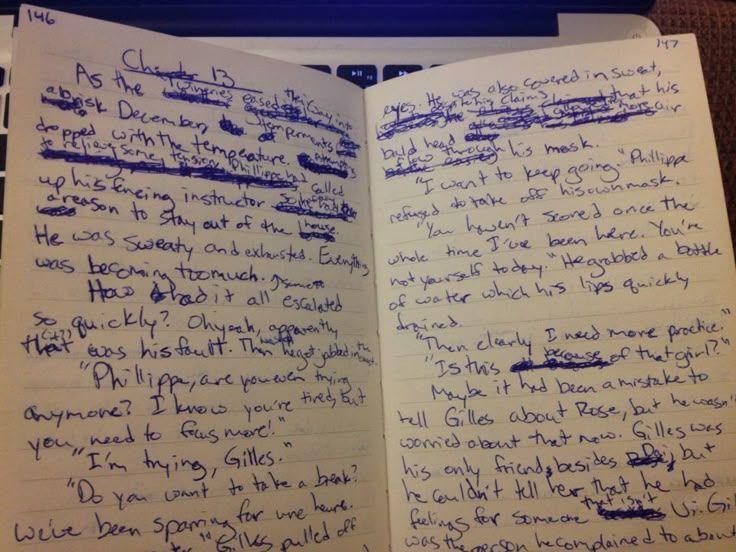 146
Chapter 13
As the wineries eased their way into
a brisk December,
dropped with the temperature.
to relieve some tension, Phillippe had called
up his fencing instructor so he had
a reason to stay out of the house.
He was sweaty and exhausted. Everything
was becoming too much.
How had it all escalated
so quickly? Oh yeah, apparently
that was his fault. Then he got jabbed in the
"Phillippe, are you even trying
anymore? I know you're tired, but
you need to focus more!"
"I'm trying, Gilles."
"Do you want to take a break?
We've been sparring for one hours.
" Gilles pulled off
147
eyes. He was also covered in sweat,
that his
bald head air
flow through his mask.
"I want to keep going." Phillippe
refused to take off his own mask.
"You haven't scored once the
whole time I've been here. You're
not yourself today." He grabbed a bottle
of water which his lips quickly
drained.
"Then clearly I need more practice."
"Is this because of that girl?"
Maybe it had been a mistake to
tell Gilles about Rose, but he wasn't
worried about that now. Gilles was
his only friend, besides but
he couldn't tell her that he had
feelings for someone that isn't
was the person he complained to about